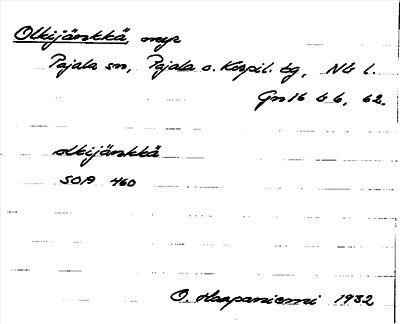 Olkijänkkä, myr
Pajala sn, Pajala o. Korpil. tg, Nb l.
Gn16 b b, 62.
olkijänkkä
SOA 460
O. Haapaniemi 1932